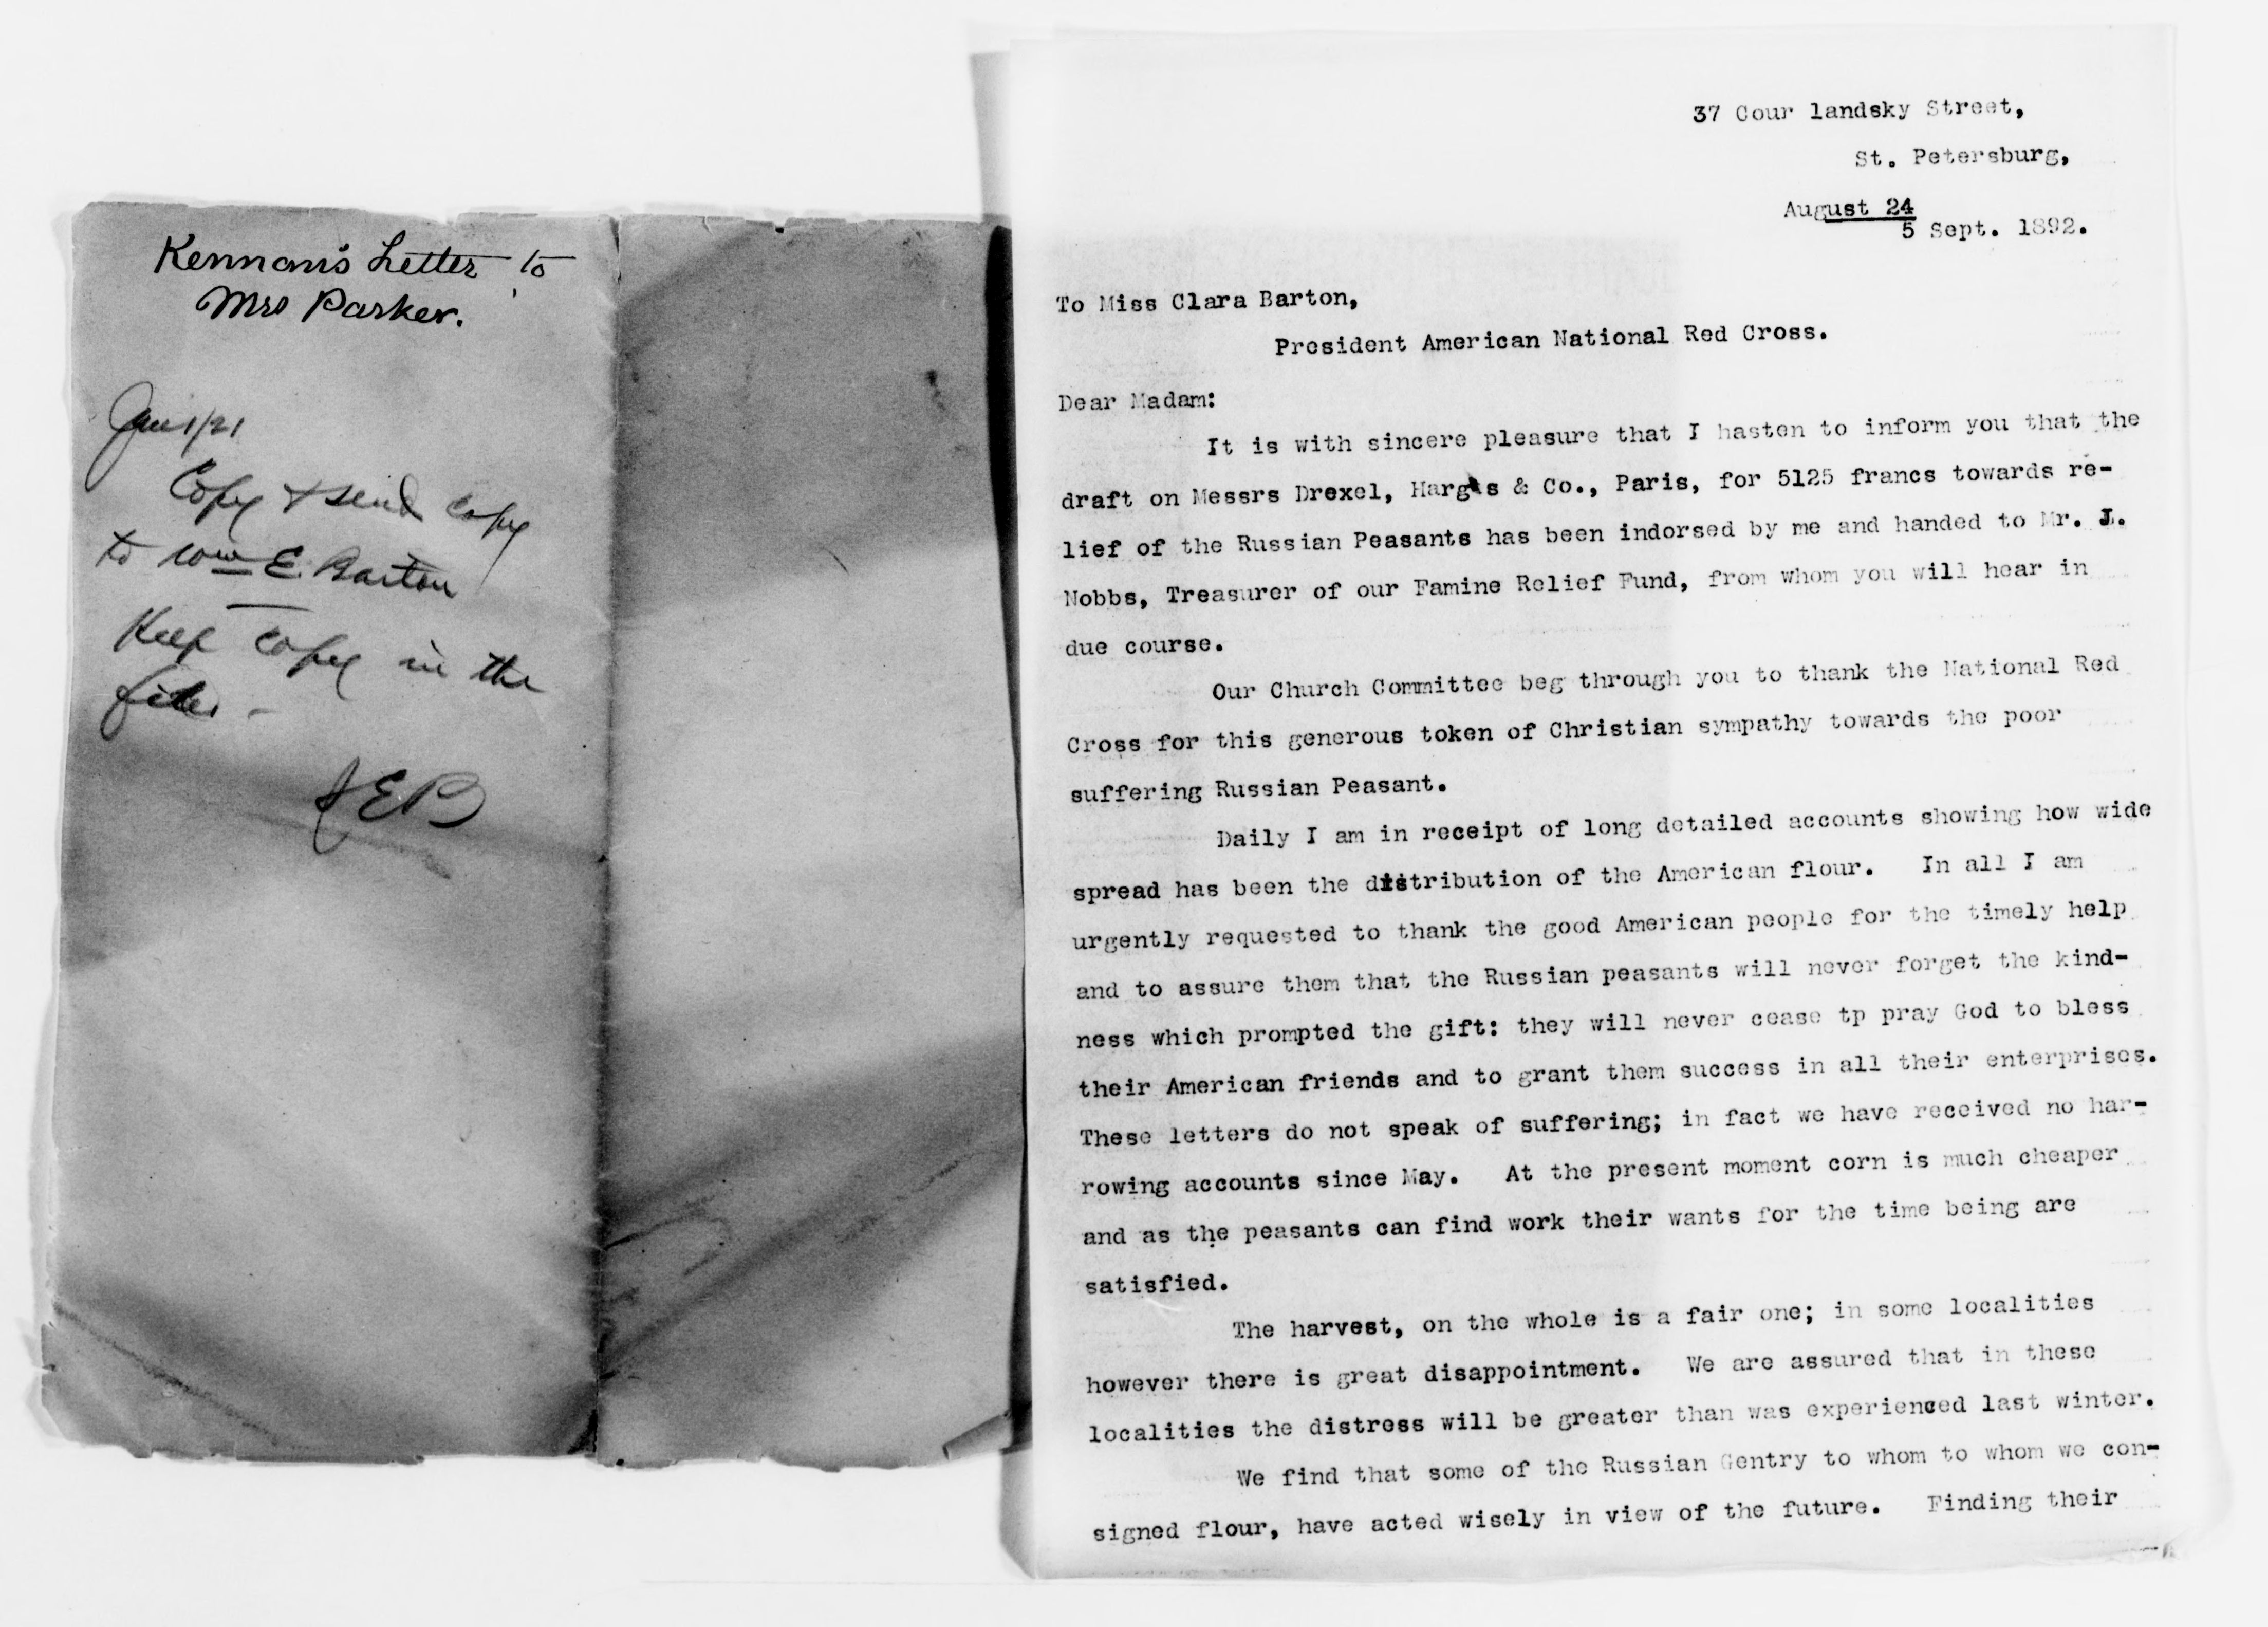 Kennan's Letter to
Mrs Parker.
Jan 1/21
Copy & send copy
to Wm E. Barton
Keep copy in the
files -
SEB
37 Cour landsky Street,
St. Petersburg,
August 24
5 Sept. 1892.
To Miss Clara Barton,
President American National Red Cross.
Dear Madam:
It is with sincere pleasure that I hasten to inform you that the
draft on Messrs Drexel, Harges & Co., Paris, for 5125 francs towards re-
lief of the Russian Peasants has been indorsed by me and handed to Mr. J.
Nobbs, Treasurer of our Famine Relief Fund, from whom you will hear in
due course.
Our Church Committee beg through you to thank the National Red
Cross for this generous token of Christian sympathy towards the poor
suffering Russian Peasant.
Daily I am in receipt of long detailed accounts showing how wide
spread has been the distribution of the American flour. In all I am
urgently requested to thank the good American people for the timely help
and to assure them that the Russian peasants will never forget the kind-
ness which prompted the gift: they will never cease tp pray God to bless
their American friends and to grant them success in all their enterprises.
These letters do not speak of suffering; in fact we have received no har-
rowing accounts since May. At the present moment corn is much cheaper
and as the peasants can find work their wants for the time being are
satisfied.
The harvest, on the whole is a fair one; in some localities
however there is great disappointment. We are assured that in these
localities the distress will be greater than was experienced last winter.
We find that some of the Russian Gentry to whom to whom we con-
signed flour, have acted wisely in view of the future. Finding their